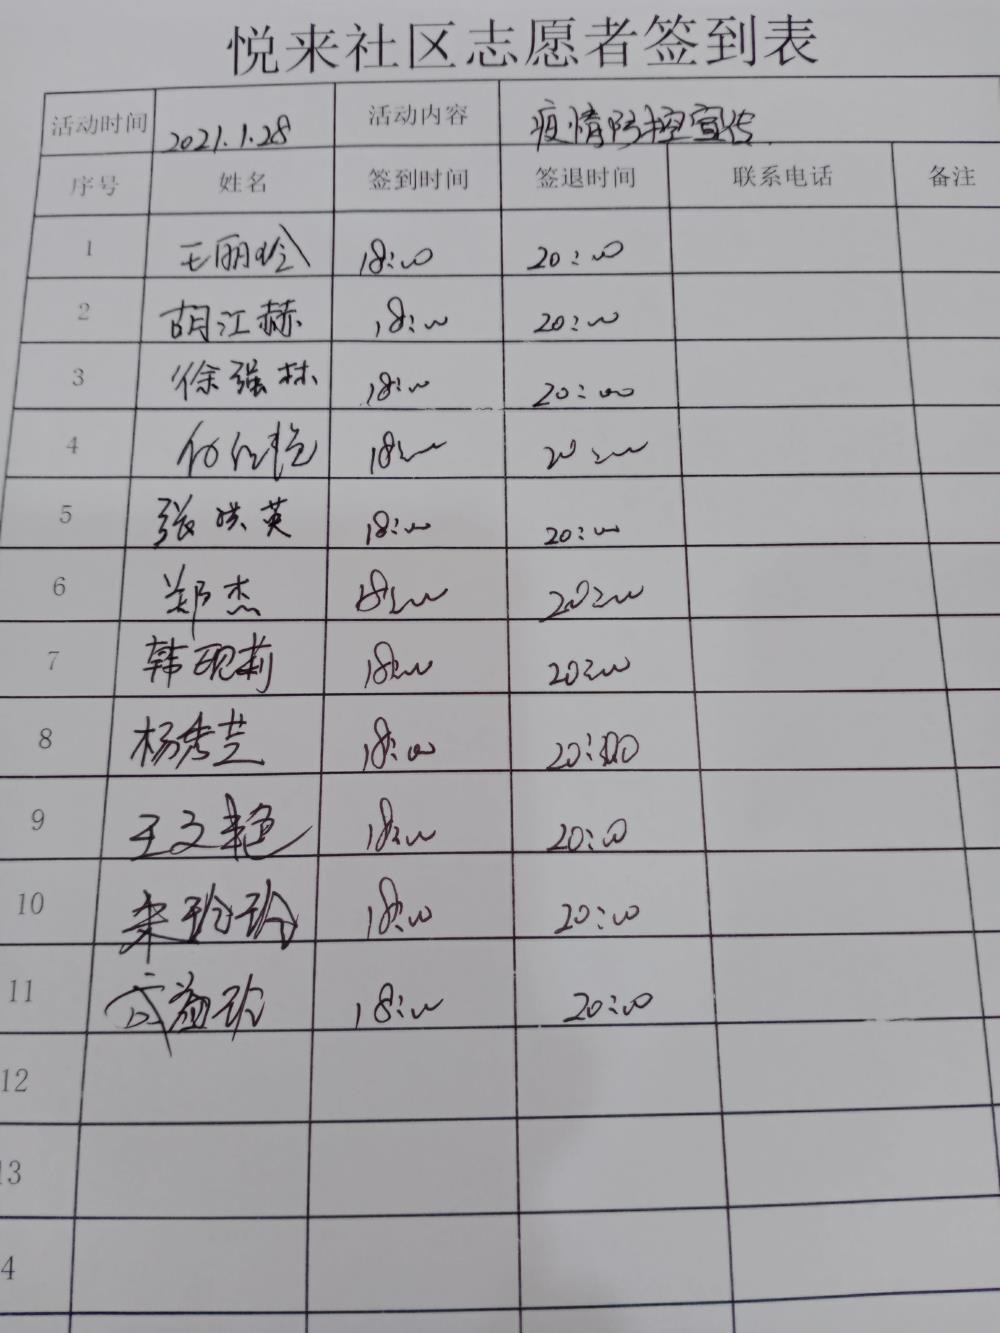 悦来社区志愿者签到表
活动时间 2021.1.28 活动内容 疫情防控宣传
序号 姓名 签到时间 签退时间 联系电话 备注
1 王丽玲 18:00 20:00
2 胡江赫 18:00 20:00
3 徐强林 18:00 20:00
4 18:00 20:00
5 张洪英 18:00 20:00
6 郑杰 18:00 20:00
7 韩砚莉 18:00 20:00
8 杨秀芝 18:00 20:00
9 王文艳 18:00 20:00
10 宋玲玲 18:00 20:00
11 18:00 20:00
12
13
4